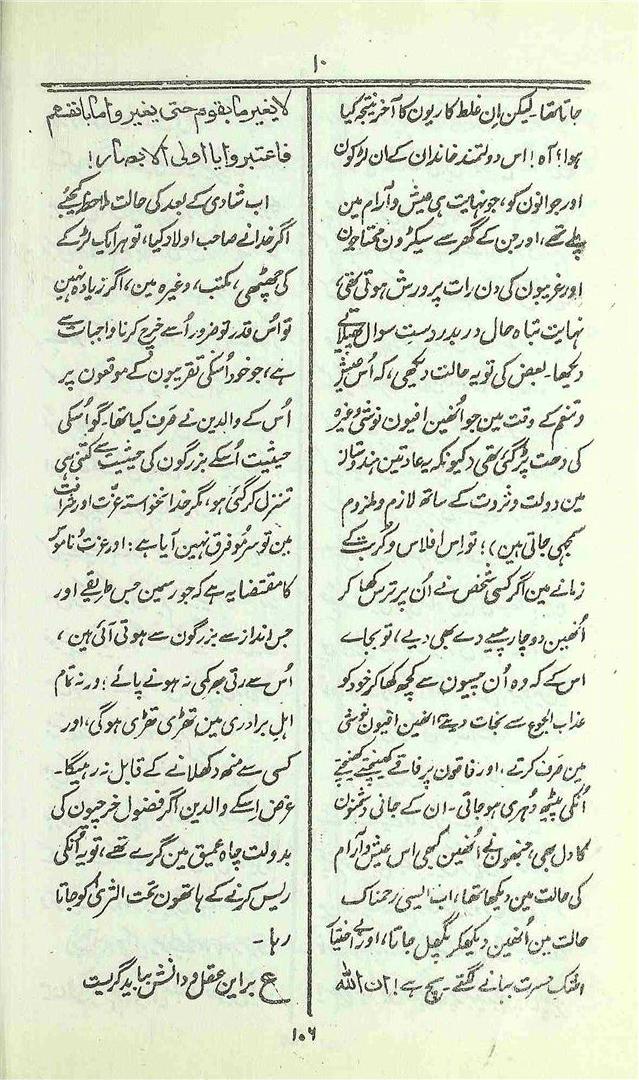 ۱۰
جاتا تھا۔ لیکن اِن غلط کاریون کا آخر نتیجہ کیا
ہوا؟ آہ! اس دولتمند خاندان کے اُن لڑکون
اور جوانون کو، جو نہایت ہی عیش و آرام مین
پلے تھے، اور جن کے گھر سے سیکڑون محتاجون
اور غریبون کی دن رات پرورش ہوتی تھی،
نہایت تباہ حال در بدر دستِ سوال پھیلاتے
دیکھا۔ بعض کی تو یہ حالت دیکھی، کہ اُس عیش
و تنعم کے وقت مین جو اُنھین افیون نوشی وغیرہ
کی دھت پڑ گئی تھی (کیونکہ یہ عادتین ہندوستان
مین دولت و ثروت کے ساتھ لازم و ملزوم
سمجھی جاتی ہین)؛ تو اِس افلاس و کُربت کے
زمانے مین اگر کسی شخص نے اُن پر ترس کھا کر
اُنھین دو چار پیسے دے بھی دیے، تو بجاے
اس کے کہ وہ اُن پیسون سے کچھ کھا کر خود کو
عذاب الجوع سے نجات دیتے، انھین افیون نوشی
مین صَرف کرتے، اور فاقون پر فاقے کھینچتے کھینچتے
اُنکی پیٹھ دُہری ہو جاتی۔ ان کے جانی دشمنون
کا دل بھی، جنھون نے اُنھین کبھی اس عیش و آرام
کی حالت مین دیکھا تھا، اب ایسی رحمناک
حالت مین اُنھین دیکھکر پگھل جاتا، اور بے اختیار
اشکِ حسرت بہانے لگتے۔ سچ ہے! ان اللہ
لا یغیر ما بقوم حتی یغیروا ما بانفسھم
فاعتبروا یا اولی الابصار!
اب شادی کے بعد کی حالت ملاحظہ کیجئے
اگر خدا نے صاحب اولاد کیا، تو ہر ایک لڑکے
کی چھٹھی، مکتب، وغیرہ مین، اگر زیادہ نہین
تو اُس قدر تو ضرور اُسے خرچ کرنا واجبات سے
ہے، جو خود اُسکی تقریبون کے موقعون پر
اُس کے والدین نے صَرف کیا تھا۔ گو اُسکی
حیثیت اُسکے بزرگون کی حیثیت سے کتنی ہی
تنزل کر گئی ہو، مگر خدانخواستہ عزّت اور شرافت
مین تو سرِ مُو فرق نہین آیا ہے: اور عزت و ناموری
کا مقتضا یہ ہے کہ جو رسمین جس طریقے اور
جس انداز سے بزرگون سے ہوتی آئی ہین،
اُس سے رتی بھر کمی نہ ہونے پائے؛ ورنہ تمام
اہلِ برادری مین تھڑی تھڑی ہو گی، اور
کسی سے منھ دکھلانے کے قابل نہ رہیگا۔
غرض اسکے والدین اگر فضول خرچیون کی
بدولت چاہ عمیق مین گرے تھے، تو یہ اُنکی
ریس کرنے کے ہاتھون تحت الثریٰ کو جاتا
رہا۔
ع بر این عقل و دانش بباید گریست
۱۰۶